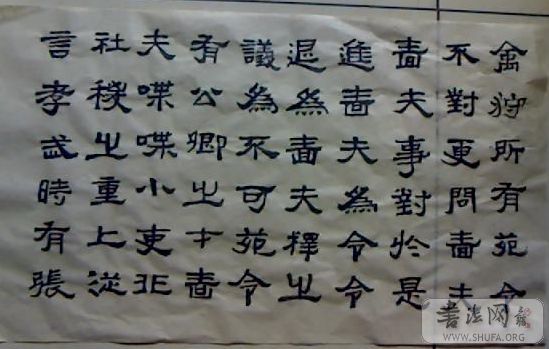 禽狩所有苑令
不對更問嗇夫
嗇夫事對於是
進嗇夫為令令
退為嗇夫釋之
議為不可苑令
有公卿之才嗇
夫喋喋小吏非
社稷之重上從
言孝武時有張
書法网
WWW.SHUFA.ORG